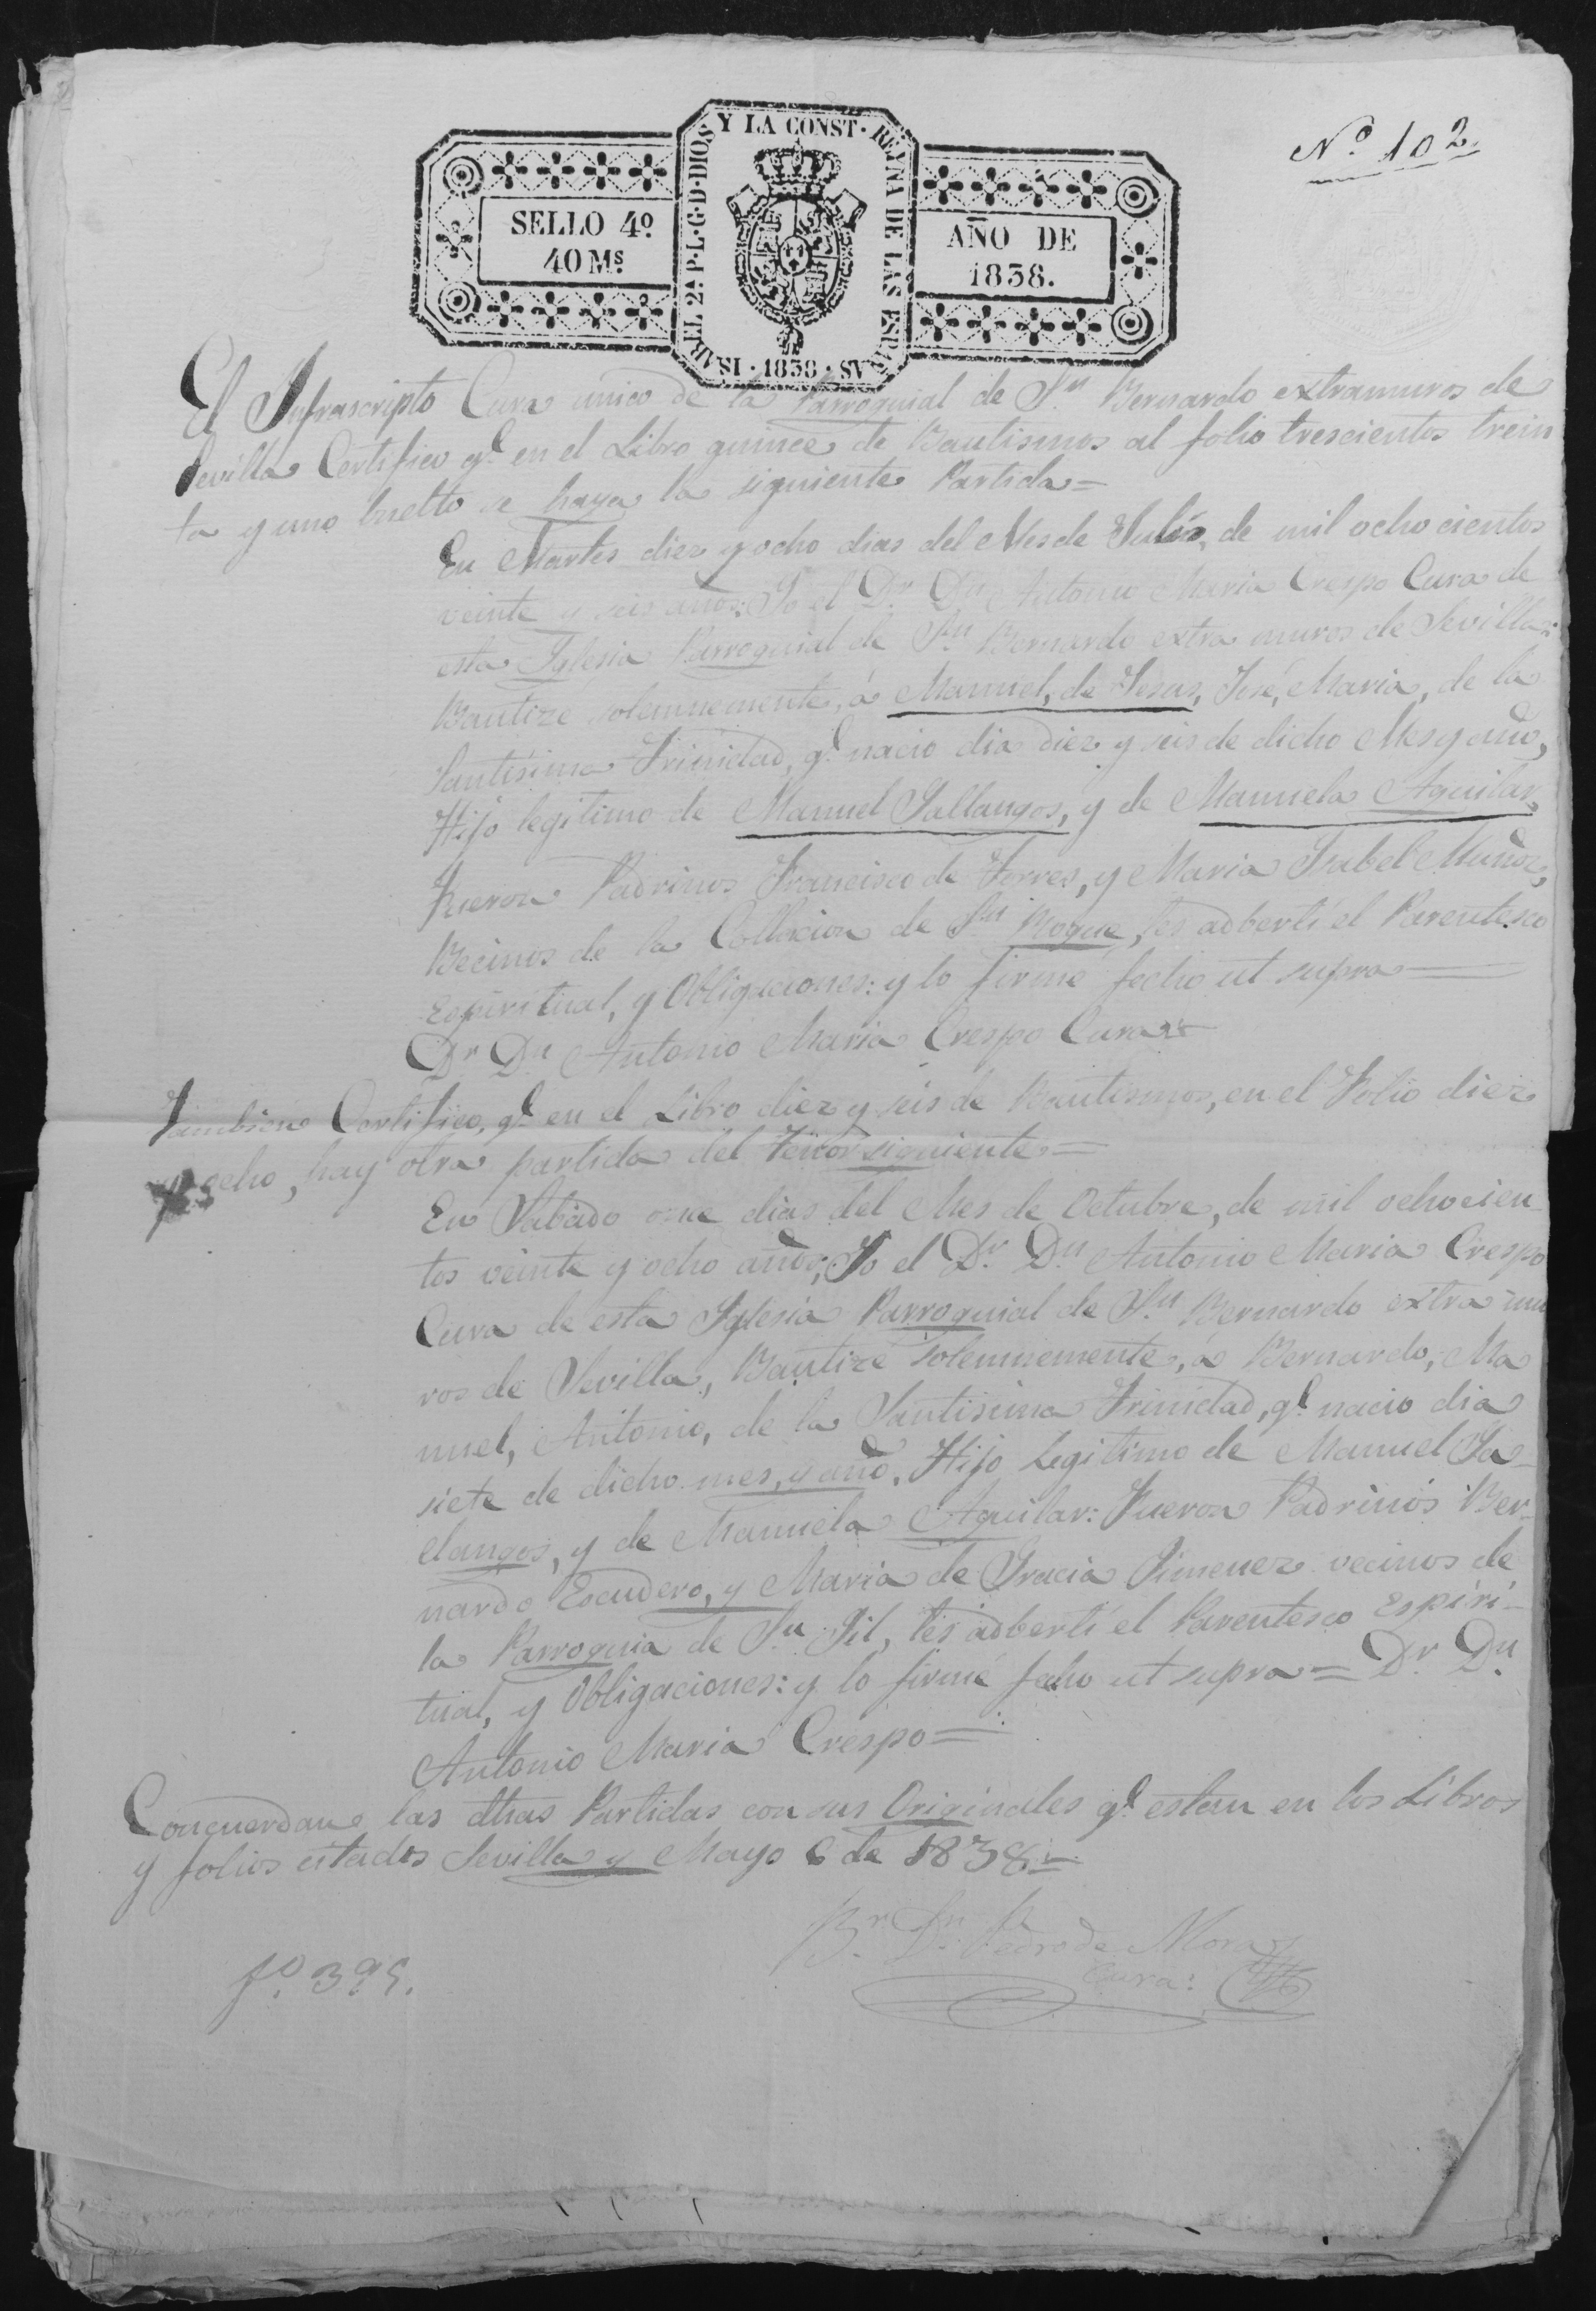 Nº 102.
ISABEL 2ª P·L·G·D·DIOS Y LA CONST· REYNA DE LAS ESPAÑAS · 1838 ·
SELLO 4º
40 Mˢ.
AÑO DE
1838.
El Infrascripto Cura unico de la Parroquial de Sⁿ Bernardo extramuros de
Sevilla Certifico qᵉ en el Libro quince de Bautismos al folio trescientos trein
ta y uno buelto se haya la siguiente Partida=
En Martes diez y ocho dias del Mes de Julio, de mil ocho cientos
veinte y seis años: Yo el Dʳ Dⁿ Antonio Maria Crespo Cura de
esta Iglesia Parroquial de Sⁿ Bernardo extra muros de Sevilla:
Bautize solemnemente, á Manuel, de Jesus, José, Maria, de la
Santísima Trinidad, qᵉ nacio dia diez y seis de dicho Mes y año,
Hijo legitimo de Manuel Sallangos, y de Manuela Aguilar,
Fueron Padrinos Francisco de Torres, y Maria Isabel Muñoz,
Becinos de la Collacion de Sⁿ Roque, les adbertí el Parentesco
Espiritual, y Obligaciones: y lo firme fecho ut supra=
Dʳ Dⁿ Antonio Maria Crespo Cura=
Tambien Certifico, qᵉ en el Libro diez y seis de Bautismos, en el Folio diez
y ocho, hay otra partida del tenor siguiente=
En Sabado once dias del Mes de Octubre, de mil ochocien
tos veinte y ocho años; Yo el Dʳ. Dⁿ Antonio Maria Crespo
Cura de esta Iglesia Parroquial de Sⁿ Bernardo extra mu
ros de Sevilla, Bautizé solemnemente, á Bernardo, Ma
nuel, Antonio, de la Santisima Trinidad, qᵉ nacio dia
siete de dicho mes, y año, Hijo Legitimo de Manuel Sa-
elangos, y de Manuela Aguilar: Fueron Padrinos Ber-
nardo Escudero, y Maria de Gracia Jimenez vecinos de
la Parroquia de Sⁿ Gil, les adbertí el Parentesco Espiri-
tual, y Obligaciones: y lo firmé fecho ut supra= Dʳ Dⁿ
Antonio Maria Crespo=
Concuerdan las dhas Partidas con sus Originales qᵉ estan en los Libros
y folios citados Sevilla y Mayo 6 de 1838=
Bʳ. Dⁿ Pedro de Mora
Cura:
fº 395.